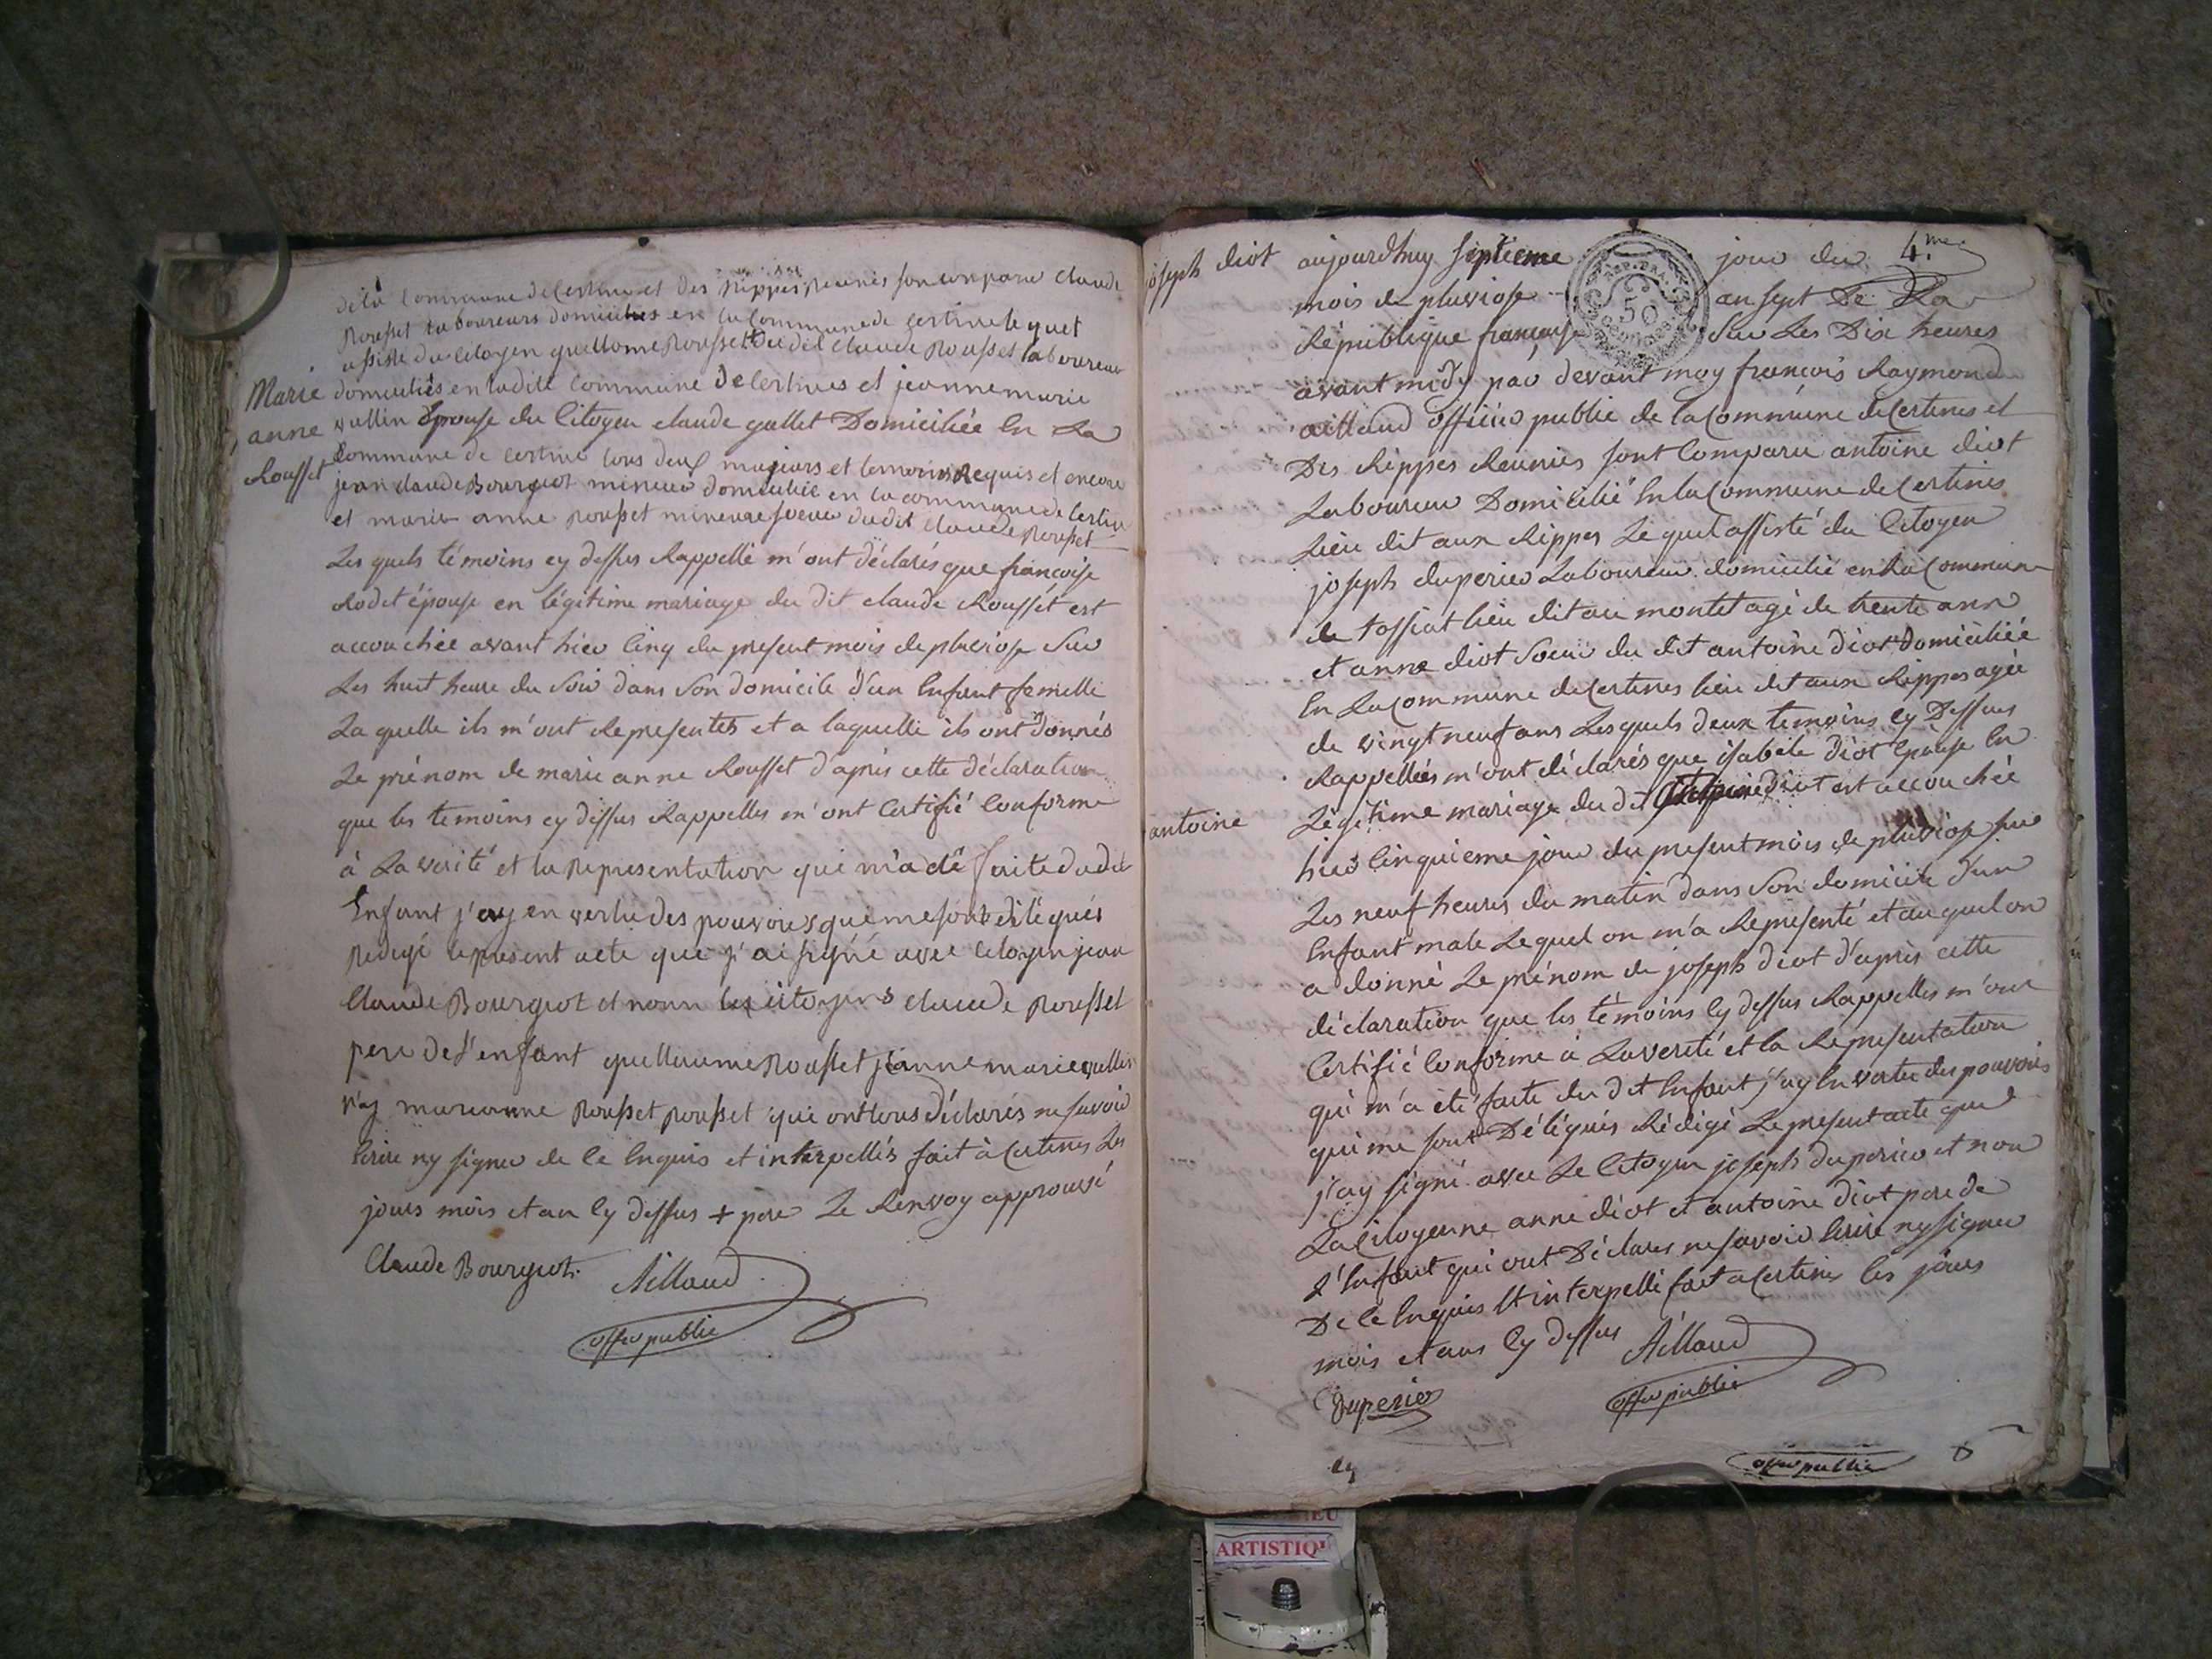 de la commune de Certines et des Rippes Reunies son comparu claude
Rousset laboureurs domiciliés en la commune de certine lequel
assisté du citoyen guillaume Rousset du dit claude Rousset laboureur
Marie domiciliés en ladite commune de Certines et jeanne marie
anne vullin Epouse du Citoyen claude gallet Domiciliée En La
Rousset Commune de certine tous deux majeurs et temoins Requis et encore
jean claude Bourgeot mineur domicilié en la commune de Certine
et marie anne rousset mineure soeur dudit claude rousset
Les quels témoins cy dessus Rappellé m'ont déclarés que françoise
Rodet épouse en légitime mariage du dit claude Rousset est
accouchée avant hier Cinq du present mois de pluviose Sur
Les huit heure du Soir dans Son domicile d'un Enfant femelle
La quelle ils m'ont Representés et a laquelle ils ont donnés
Le prénom de marie anne Rousset d'apres cette déclaration
que les temoins cy dessus Rappelles m'ont Certifié Conforme
à La verité et la Representation qui m'a été faite du dit
Enfant j'ay en vertu des pouvoirs qui me sont délégués
Redigé le present acte que j'ai signé avec citoyen jean
Claude Bourgeot et nonn les citoyens claude rousset
pere de l'enfant guillaume Rousset jeanne marie vullin
n'y marianne Rousset rousset qui ont tous déclarés ne savoir
Ecrire ny signer de Ce Enquis et interpellés fait à Certines Les
jours mois et an Cy dessus + pere Le Renvoy approuvé
Claude Bourgeot Aillaud
offer public
joseph diot aujourdhuy septieme jour du 4.me
mois de pluviose an sept De La
République françoise Sur Les Dix heures
REP. FRA.
50
avant midy par devant moy françois Raymond
aillaud officier public de la Commune de Certines et
Des Rippes Reunies sont Comparu antoine diot
Laboureur Domicilié En la Commune de Certines
Lieu dit aux Rippes Le quel assisté du Citoyen
joseph duperier Laboureur domicilié en La Commune
de tossiat lieu dit au montet agé de trente ans
et anne diot Soeur du dit antoine diot domiciliée
En La Commune de Certines lieu dit aux Rippes agée
de vingt neuf ans Lesquels deux temoins Cy Dessus
Rappellés m'ont déclarés que isabele diot Epouse En
antoine Légitime mariage du dit diot est accouchée
hier Cinquieme jour du present mois de pluviose sur
Les neuf heures du matin dans Son domicile d'un
Enfant male Lequel on m'a Representé et au quel on
a donné Le prénom de joseph diot d'après cette
déclaration que les témoins Cy dessus Rappelles m'ont
Certifié Conforme à La vereté et la Representation
qui m'a été faite du dit Enfant j'ay En vertu des pouvoirs
qui me sont Délégués Rédigé Le present acte que
j'ay signé avec Le Citoyen joseph duperier et non
La Citoyenne anne diot et antoine diot pere de
L'Enfant qui ont Déclares ne savoir Ecrire ny signer
De Ce Enquis Et interpellé fait a Certines les jours
mois et ans Cy dessus Aillaud
Duperier offer public
offer public
ARTISTIQ